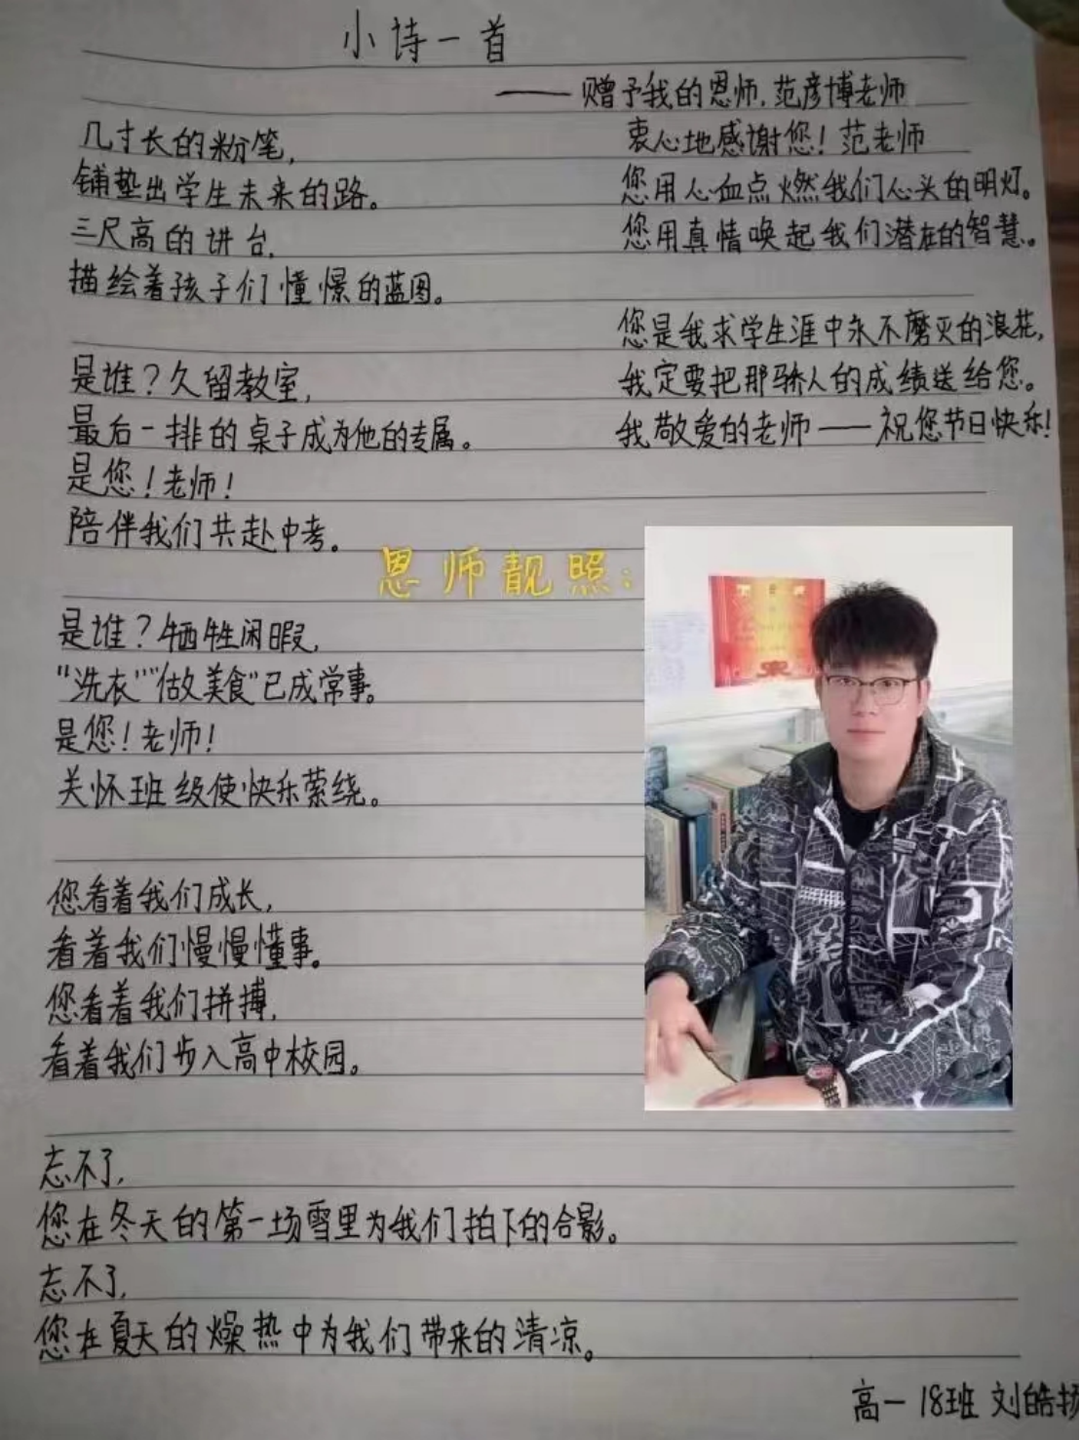 小诗一首
——赠予我的恩师,范彦博老师
几寸长的粉笔,
铺垫出学生未来的路。
三尺高的讲台,
描绘着孩子们憧憬的蓝图。
是谁?久留教室,
最后一排的桌子成为他的专属。
是您!老师!
陪伴我们共赴中考。
是谁?牺牲闲暇,
“洗衣”“做美食”已成常事。
是您!老师!
关怀班级使快乐萦绕。
您看着我们成长,
看着我们慢慢懂事。
您看着我们拼搏,
看着我们步入高中校园。
忘不了,
您在冬天的第一场雪里为我们拍下的合影。
忘不了,
您在夏天的燥热中为我们带来的清凉。
衷心地感谢您!范老师
您用心血点燃我们心头的明灯。
您用真情唤起我们潜在的智慧。
您是我求学生涯中永不磨灭的浪花,
我定要把那骄人的成绩送给您。
我敬爱的老师——祝您节日快乐!
恩师靓照:
高一18班 刘皓扬